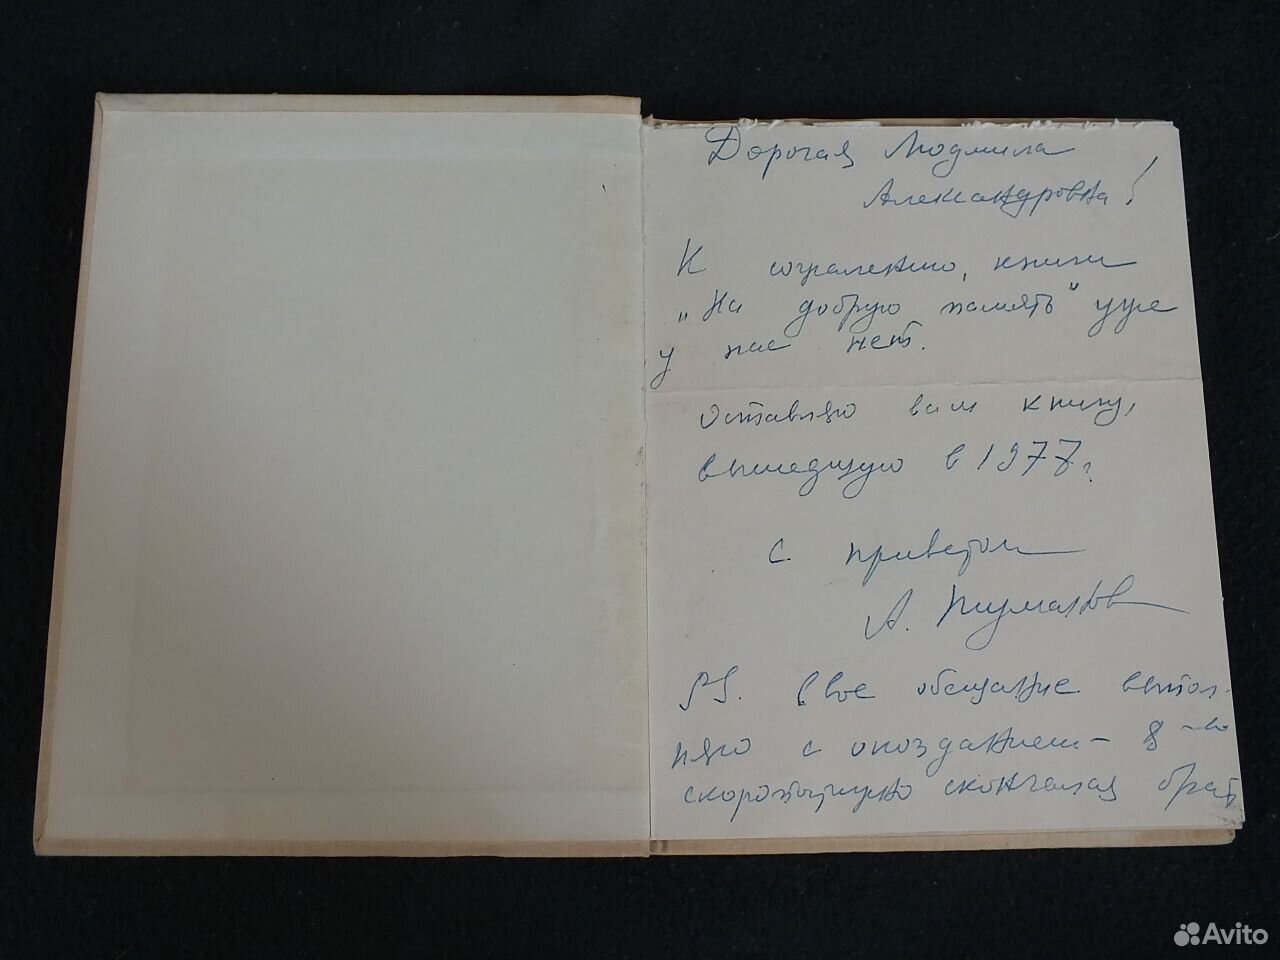 Дорогая Людмила
Александровна!
К сожалению, книги
„На добрую память" уже
у нас нет.
Оставляю вам книгу,
вышедшую в 1977 г
С приветом
А.
PS. Свое обещание выпол-
няю с опозданием – 8-го
скоропостижно скончался брат
Avito